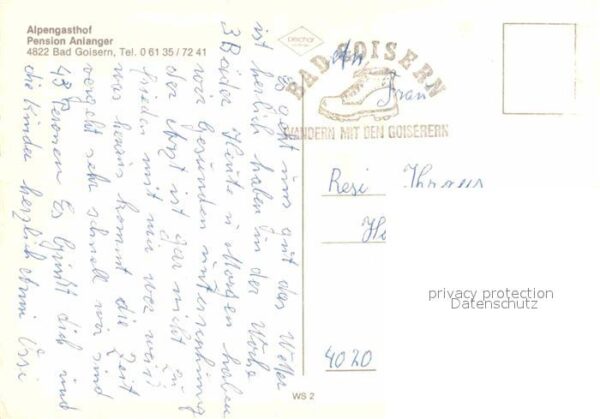 Alpengasthof
Pension Anlanger
4822 Bad Goisern, Tel. 0 61 35 / 72 41
BAD GOISERN
WANDERN MIT DEN GOISERERN
An
Frau
Resi
4020
privacy protection
Datenschutz
WS 2
Es geht uns gut das Wetter
ist herrlich haben in der Woche
3 Bäder Heute u Morgen haben
wir Gesunden untersuchung
der Arzt ist gar nicht zu
frieden mit mir wer weis
was heraus kommt die Zeit
vergeht sehr schnell wir sind
43 Personen Es grüßt dich und
die Kinder herzlich